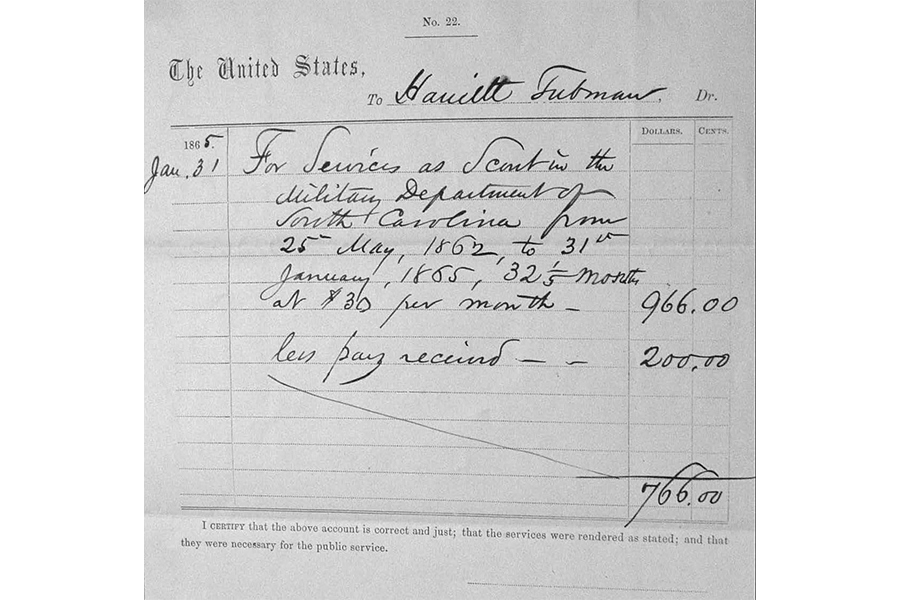 No. 22.
The United States,
To Harriett Tubman, Dr.
DOLLARS. CENTS.
1865.
Jan. 31 For Services as Scout in the
Military Department of
South Carolina from
25th May, 1862, to 31st
January, 1865, 32 1/5 months
at $30 per month – 966.00
less pay received – – 200.00
766.00
I CERTIFY that the above account is correct and just; that the services were rendered as stated; and that
they were necessary for the public service.